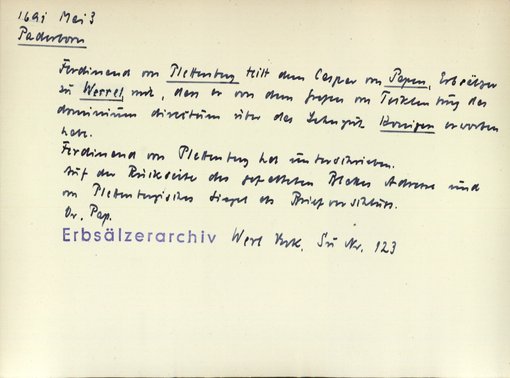 1691 Mai 3
Paderborn
Ferdinand von Plettenberg teilt dem Caspar von Papen, Erbsälzer
zu Werrel, mit, dass er von dem Grafen von Tecklenburg das
dominium directum über das Lehngut Koningen erworben
habe.
Ferdinand von Plettenberg hat unterschrieben.
Auf der Rückseite des gefalteten Blattes Adresse und
von Plettenbergisches Siegel als Briefverschluss.
Or. Pap.
Erbsälzerarchiv Werl Urk. Nr. 123